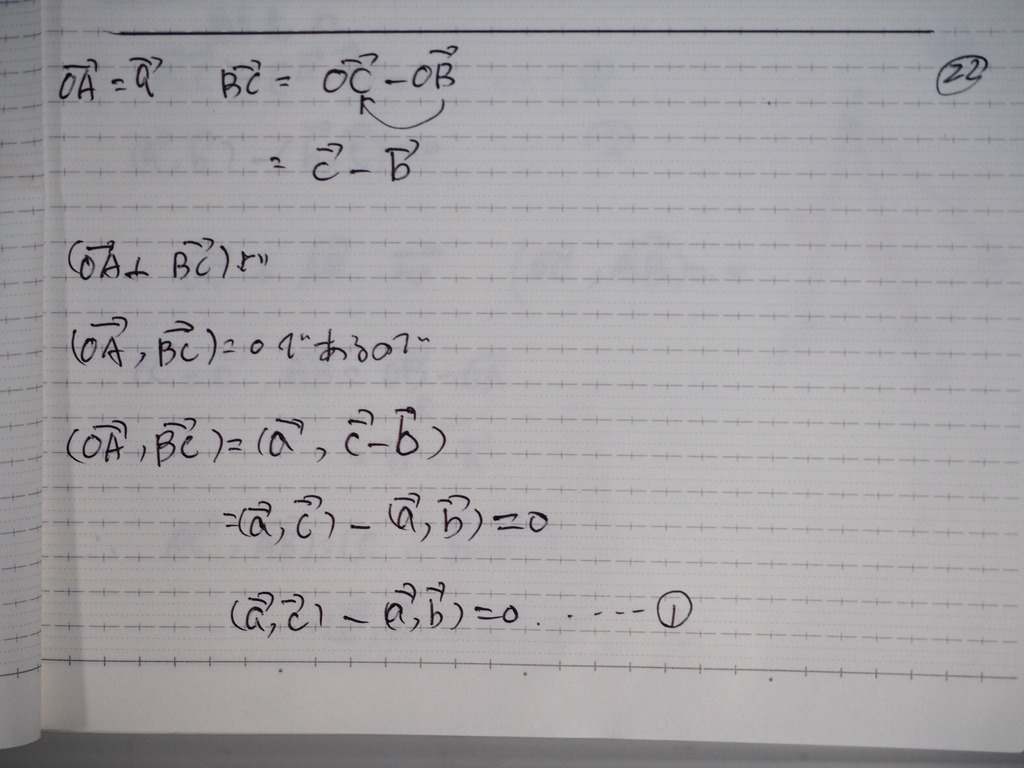 OA→ = a→  BC→ = OC→ − OB→  ㉒
= c→ − b→
(OA→ ⊥ BC→) より
(OA→, BC→) = 0 であるので
(OA→, BC→) = (a→, c→ − b→)
= (a→, c→) − (a→, b→) = 0
(a→, c→) − (a→, b→) = 0 . . ---- ①